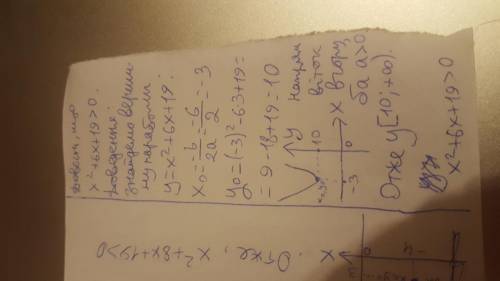 Довести, що
x²+6x+19>0.
Доведення:
знайдемо верши-
ну параболи
y=x²+6x+19:
x₀=-b/2a=-6/2=-3
y₀=(-3)²-6·3+19=
=9-18+19=10
y
10
-3
0
x
Напрям
віток
вгору,
бо a>0
Отже y[10;+∞).
x²+6x+19>0
x
0
-4
. Отже, x²+8x+19>0